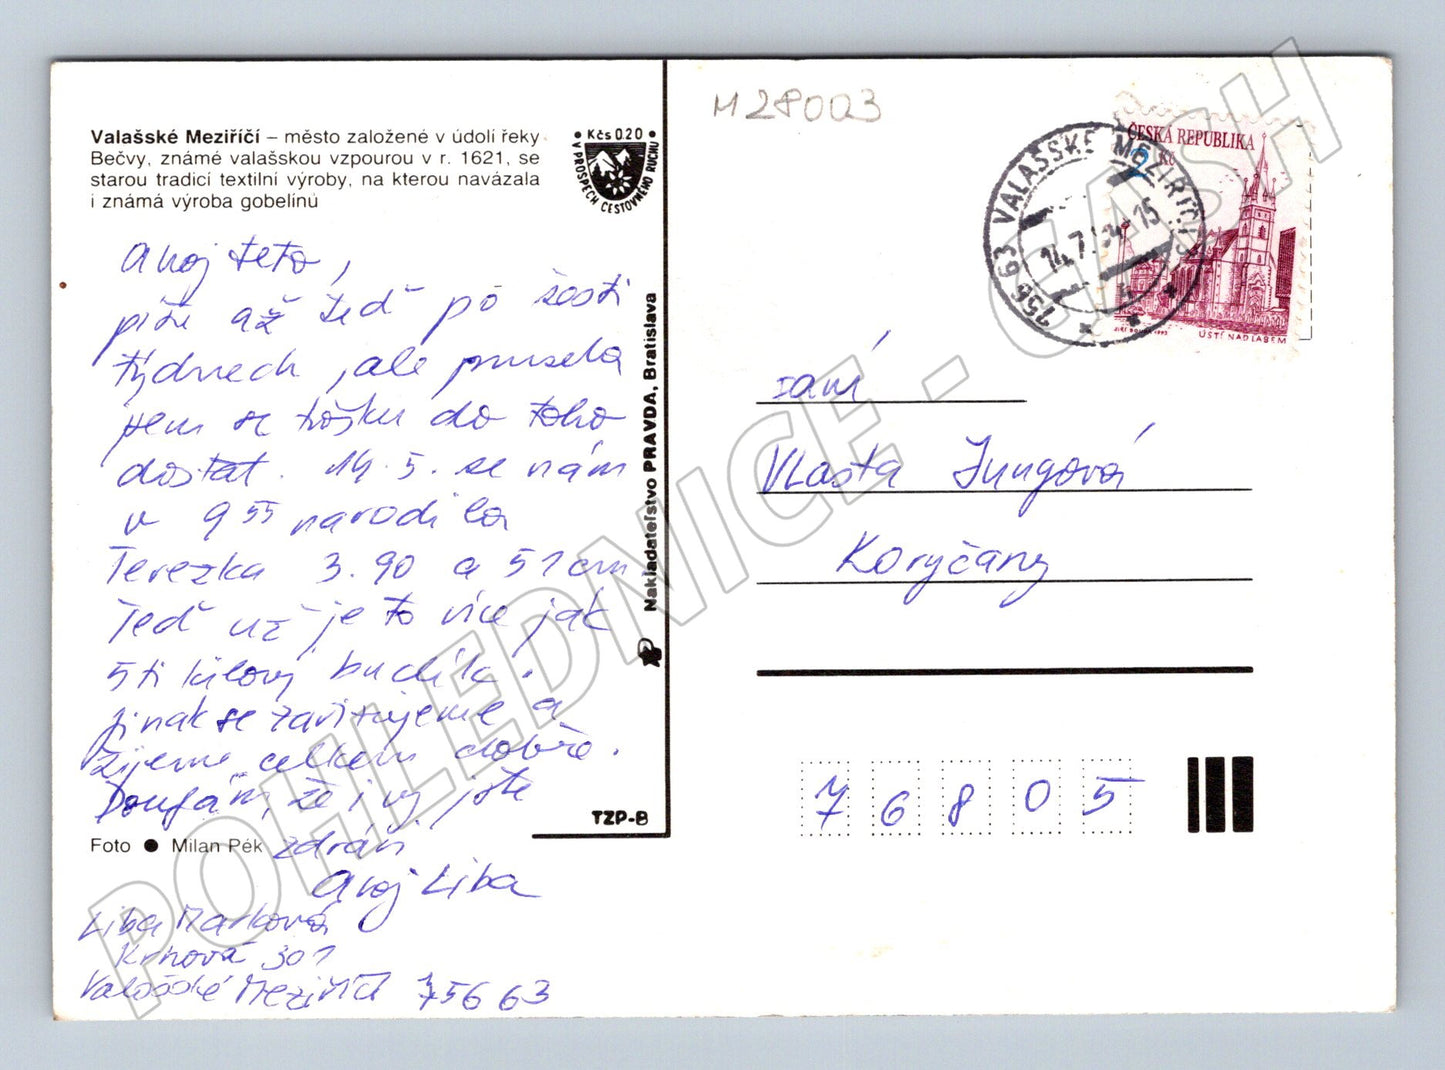 Valašské Meziříčí – město založené v údolí řeky
Bečvy, známé valašskou vzpourou v r. 1621, se
starou tradicí textilní výroby, na kterou navázala
i známá výroba gobelínů
• Kčs 0.20 •
V PROSPĚCH CESTOVNÉHO RUCHU
Ahoj teto,
píši až teď po šesti
týdnech, ale musela
jsem se trošku do toho
dostat. 14. 5. se nám
v 9 55 narodila
Terezka 3.90 a 51 cm
Teď už je to více jak
5ti kilový budík.
Jinak se zařizujeme a
žijeme celkem dobře.
Doufám, že i vy jste
zdrávi
Ahoj Liba
Liba Marková
Křhová 301
Valašské Meziříčí 756 63
Foto ● Milan Pék
Nakladateľstvo PRAVDA, Bratislava
TZP-B
M28003
ČESKÁ REPUBLIKA
2
Kč
ÚSTÍ NAD LABEM
756 63 VALAŠSKÉ MEZIŘÍČÍ 3
14.7.94-15
paní
Vlasta Jungová
Koryčany
76805
POHLEDNICE - CASH